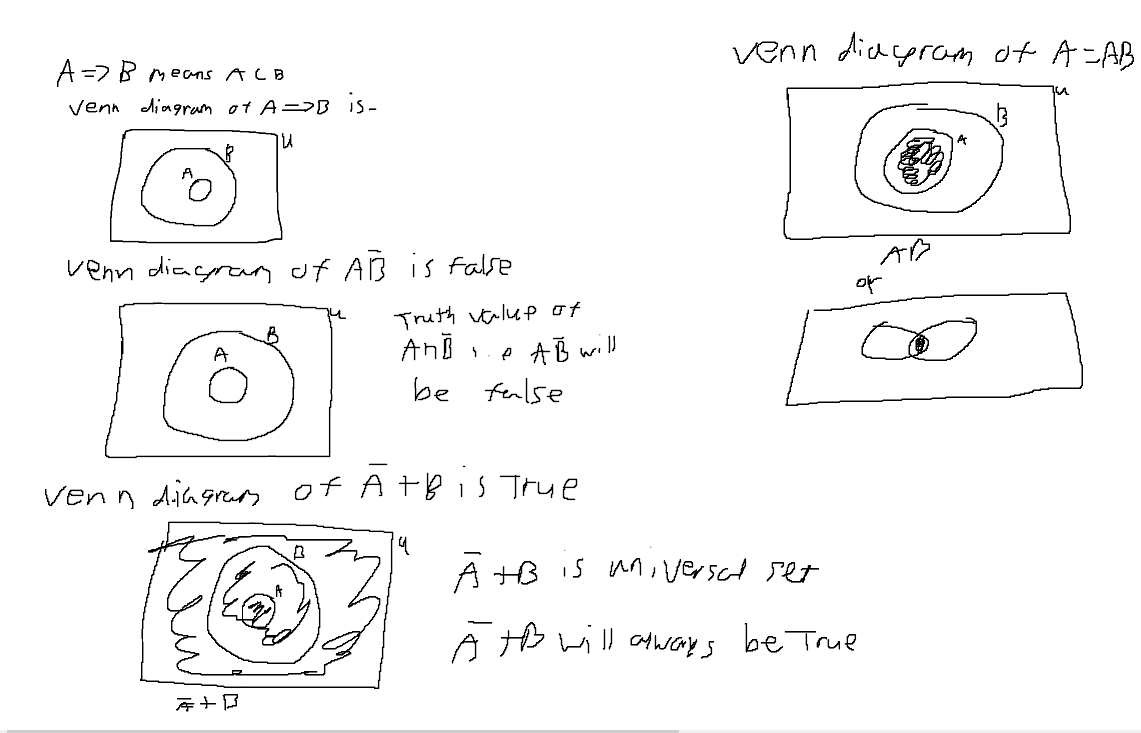 A => B means A ⊂ B
venn diagram of A => B is -
U
B
A
venn diagram of AB̅ is false
u
B
A
Truth value of
A∩B̅ i.e AB̅ will
be false
venn diagram of A̅ + B is True
u
B
A
A̅ + B
A̅ + B is universal set
A̅ + B will always be True
venn diagram of A = AB
u
B
A
AB
or